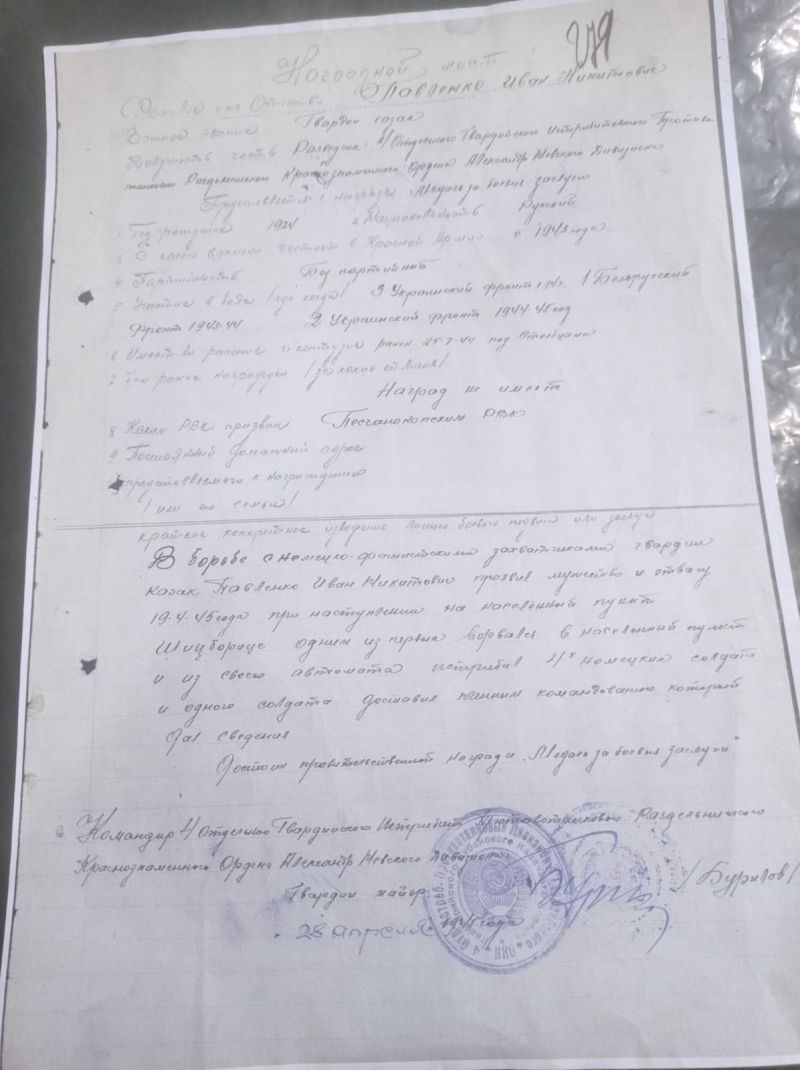 279
Наградной лист
Фамилия имя Отчество Павленко Иван Никитович
Военное звание Гвардии казак
Должность часть Разведчик 4 Отдельного Гвардейского Истребительного Противо
танкового Раздельнинского Краснознаменного Ордена Александр Невского Дивизиона
Представляется к награде Медаль за боевые заслуги
1 Год рождения 1924 Национальность Русский
3 С какого времени состоит в Красной Армии с 1943 года
4 Партийность Без партийный
5 Участие в боях /где когда/ 3 Украинский фронт 1 Белорусский
Фронт 1943-44. 2 Украинский фронт 1944-45 год
6 Имеет ли ранение и контузии ранен 25-7-44 под
7 Чем ранее награжден /за какие отличия/
Наград не имеет
8 Каким РВК призван Песчанокопским РВК
9 Постоянный домашний адрес
представляемого к награждению
/или его семьи/
краткое конкретное изложение личного боевого подвига или заслуг
В борьбе с немецко-фашистскими захватчиками гвардии
казак Павленко Иван Никитович проявил мужество и отвагу
19.4.45 года при наступлении на населенный пункт
одним из первых ворвался в населенный пункт
и из своего автомата истребил 4х немецких солдат
и одного солдата доставил пленним командованию который
дал сведения
Достоин правительственной награда „Медаль за боевые заслуги"
Командир 4 Отдельного Гвардейского Истребит. Противотанкового Раздельнинского
Краснознаменного Ордена Александр Невского дивизиона
Гвардии майор /Бурилов/
28 апреля 1945 года